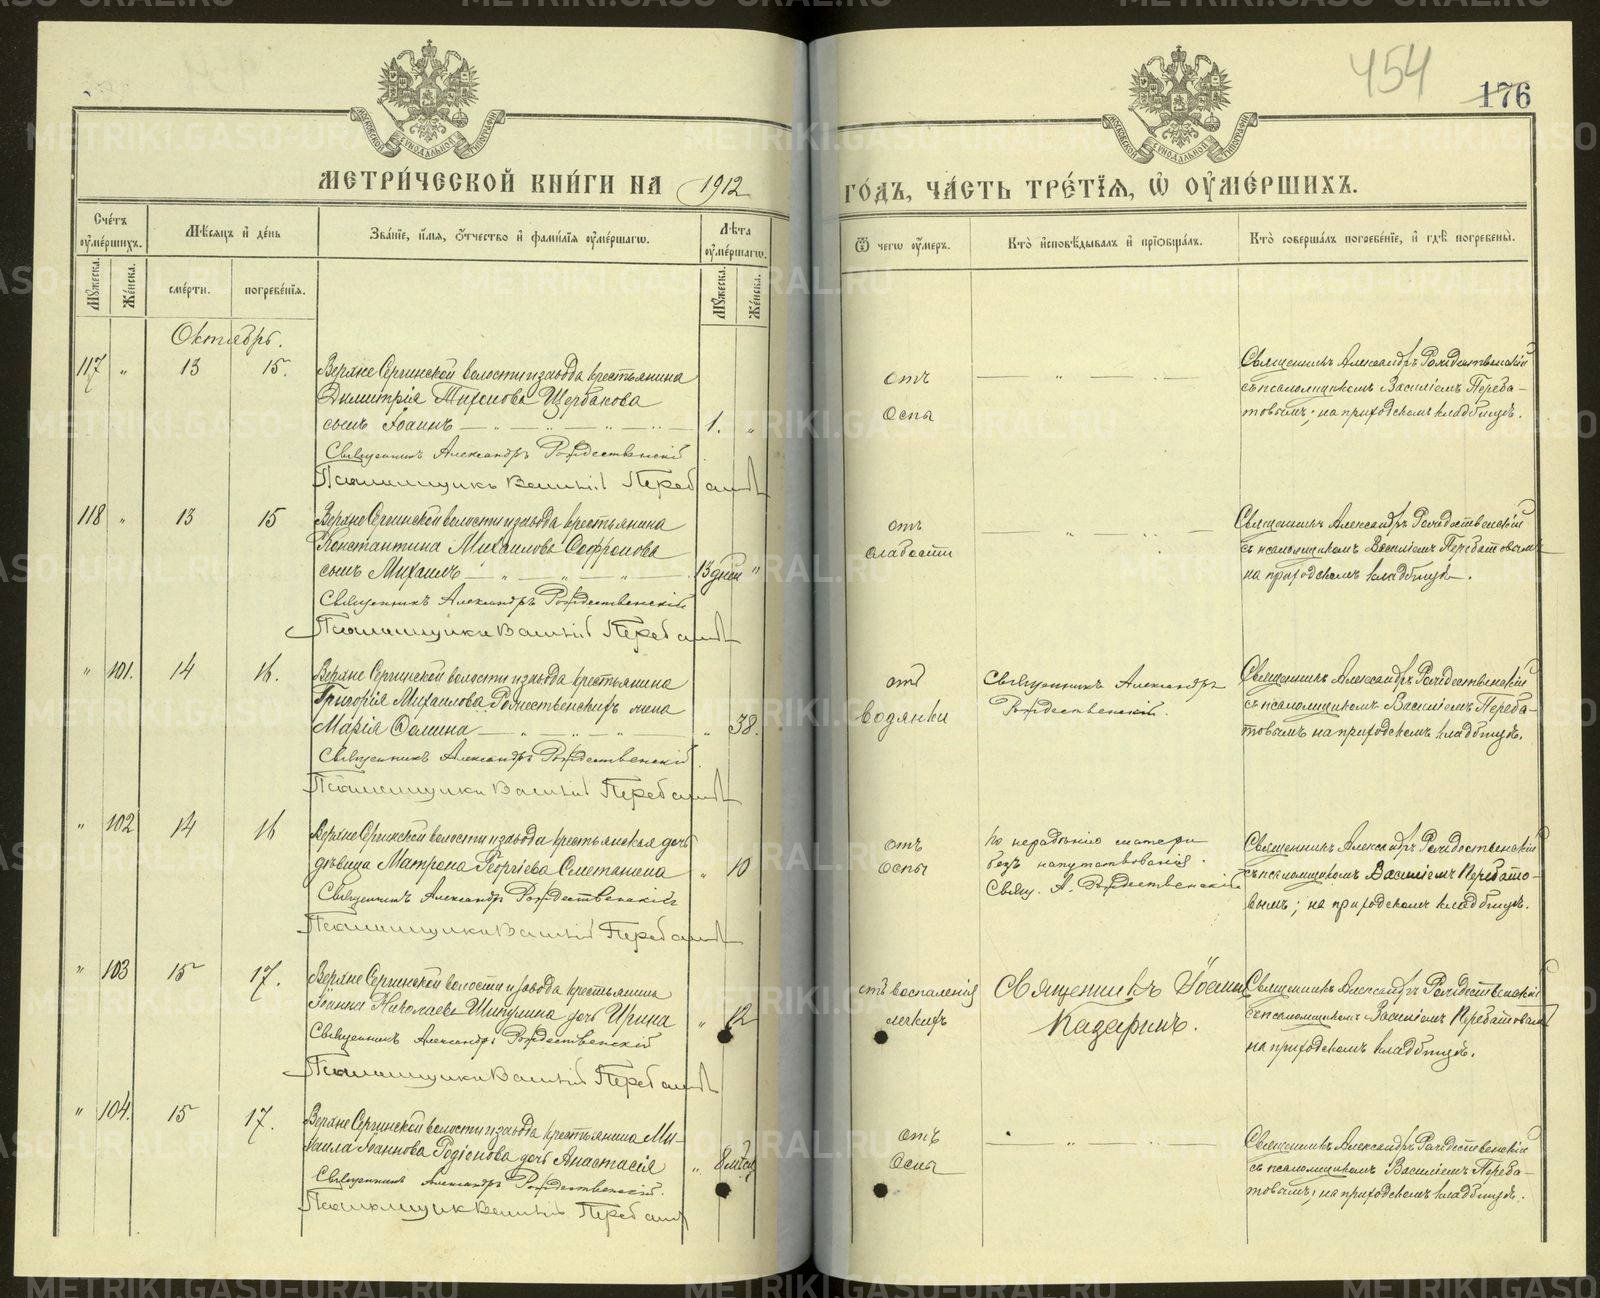 454
176
МОСКОВСКОЙ СѴНОДАЛЬНОЙ ТИПОГРАФІИ
МОСКОВСКОЙ СѴНОДАЛЬНОЙ ТИПОГРАФІИ
МЕТРИ́ЧЕСКОЙ КНИ́ГИ НА 1912
ГО́ДЪ, ЧА́СТЬ ТРЕ́ТІЯ, Ѡ ОУМЕ́РШИХЪ.
Сче́тъ оуме́ршихъ.
Мѣсяцъ и де́нь
Зва́ніе, и́мя, о́тчество и фами́лія оуме́ршагѡ.
Лѣта оуме́ршагѡ.
Ѿ чегѡ оу́меръ.
Кто̀ исповѣ́дывалъ и пріѻбща́лъ.
Кто̀ соверша́лъ погребе́ніе, и гдѣ̀ погребены̀.
Му́жеска.
Же́нска.
сме́рти.
погребе́нія.
Му́жеска.
Же́нска.
Октябрь.
117 " 13 15.
Верхне Сергинской волости и завода крестьянина
Димитрія Тихонова Щербакова
сынъ Іоаннъ — " — " — " — 1. "
Священникъ Александръ Рождественскій
Псаломщикъ Василій
отъ
Оспы
— " — " —
Священникъ Александръ Рождественскій
съ псаломщикомъ Василіемъ Переба-
товымъ; на приходскомъ кладбищѣ.
118 " 13 15
Верхне Сергинской волости и завода крестьянина
Константина Михаилова Софронова
сынъ Михаилъ — " — " — " — 13 дней "
Священникъ Александръ Рождественскій
Псаломщикъ Василій
отъ
слабости
— " — " —
Священникъ Александръ Рождественскій
съ псаломщикомъ Василіемъ Перебатовымъ
на приходскомъ кладбищѣ.
" 101. 14 16.
Верхне Сергинской волости и завода крестьянина
Григорія Михаилова Рождественскихъ жена
Марія Ѳомина — " — " — " — " 38.
Священникъ Александръ Рождественскій.
Псаломщикъ Василій
отъ
водянки
Священникъ Александръ
Рождественскій.
Священникъ Александръ Рождественскій
съ псаломщикомъ Василіемъ Переба-
товымъ на приходскомъ кладбищѣ.
" 102 14 16
Верхне Сергинской волости и завода крестьянская дочь
дѣвица Матрона Георгіева Сметанина " 10
Священникъ Александръ Рождественскій
Псаломщикъ Василій
отъ
оспы
по нерадѣнію матери
безъ напутствованія.
Свящ. А. Рождественскій
Священникъ Александръ Рождественскій
съ псаломщикомъ Василіемъ Перебато-
вымъ; на приходскомъ кладбищѣ.
" 103 15 17.
Верхне Сергинской волости и завода крестьянина
Іоанна Николаева Шипулина дочь Ирина " 12
Священникъ Александръ Рождественскій
Псаломщикъ Василій
отъ воспаленія
легкихъ
Священникъ Іоаннъ
Казаринъ.
Священникъ Александръ Рождественскій
съ псаломщикомъ Василіемъ Перебатовымъ
на приходскомъ кладбищѣ.
" 104. 15 17.
Верхне Сергинской волости и завода крестьянина Ми-
хаила Іоаннова Родіонова дочь Анастасія " 8 мѣсяц
Священникъ Александръ Рождественскій.
Псаломщикъ Василій
отъ
Оспы
— " —
Священникъ Александръ Рождественскій
съ псаломщикомъ Василіемъ Переба-
товымъ; на приходскомъ кладбищѣ.
METRIKI.GASO-URAL.RU